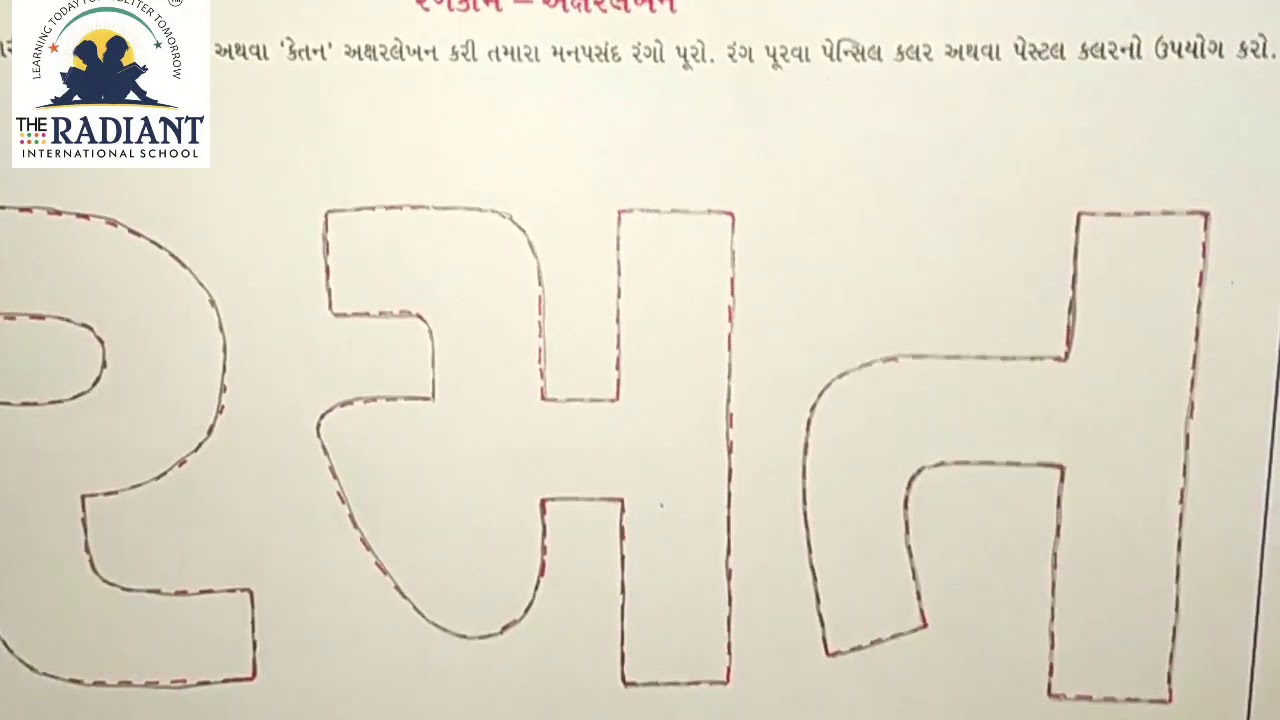 રંગકામ – અક્ષરલેખન
અથવા ‘કેતન’ અક્ષરલેખન કરી તમારા મનપસંદ રંગો પૂરો. રંગ પૂરવા પેન્સિલ કલર અથવા પેસ્ટલ કલરનો ઉપયોગ કરો.
LEARNING TODAY FOR A BETTER TOMORROW
THE RADIANT
INTERNATIONAL SCHOOL
રમત